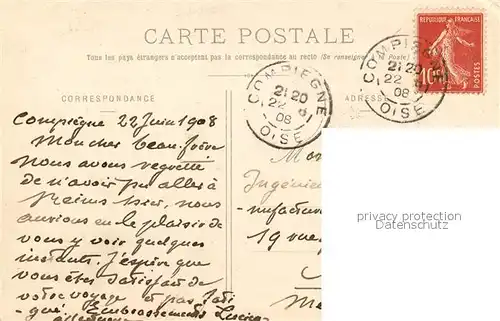 CARTE POSTALE
Tous les pays étrangers n'acceptent pas la correspondance au recto (Se renseigner à la Poste)
REPUBLIQUE FRANCAISE
10
POSTES
COMPIEGNE
21 20
22 6
08
OISE
COMPIEGNE
21 20
22
08
OISE
CORRESPONDANCE
ADRESSE
Compiègne 22 Juin 1908
Mon cher beau-frère
Nous avons regretté
de n'avoir pu aller à
Reims hier, nous
aurions eu le plaisir de
vous y voir quelques
instants. J'espère que
vous êtes satisfait de
votre voyage et pas fati
-gué. Embrassements Lucien
Ingénieur
-nufacture
19 rue
privacy protection
Datenschutz